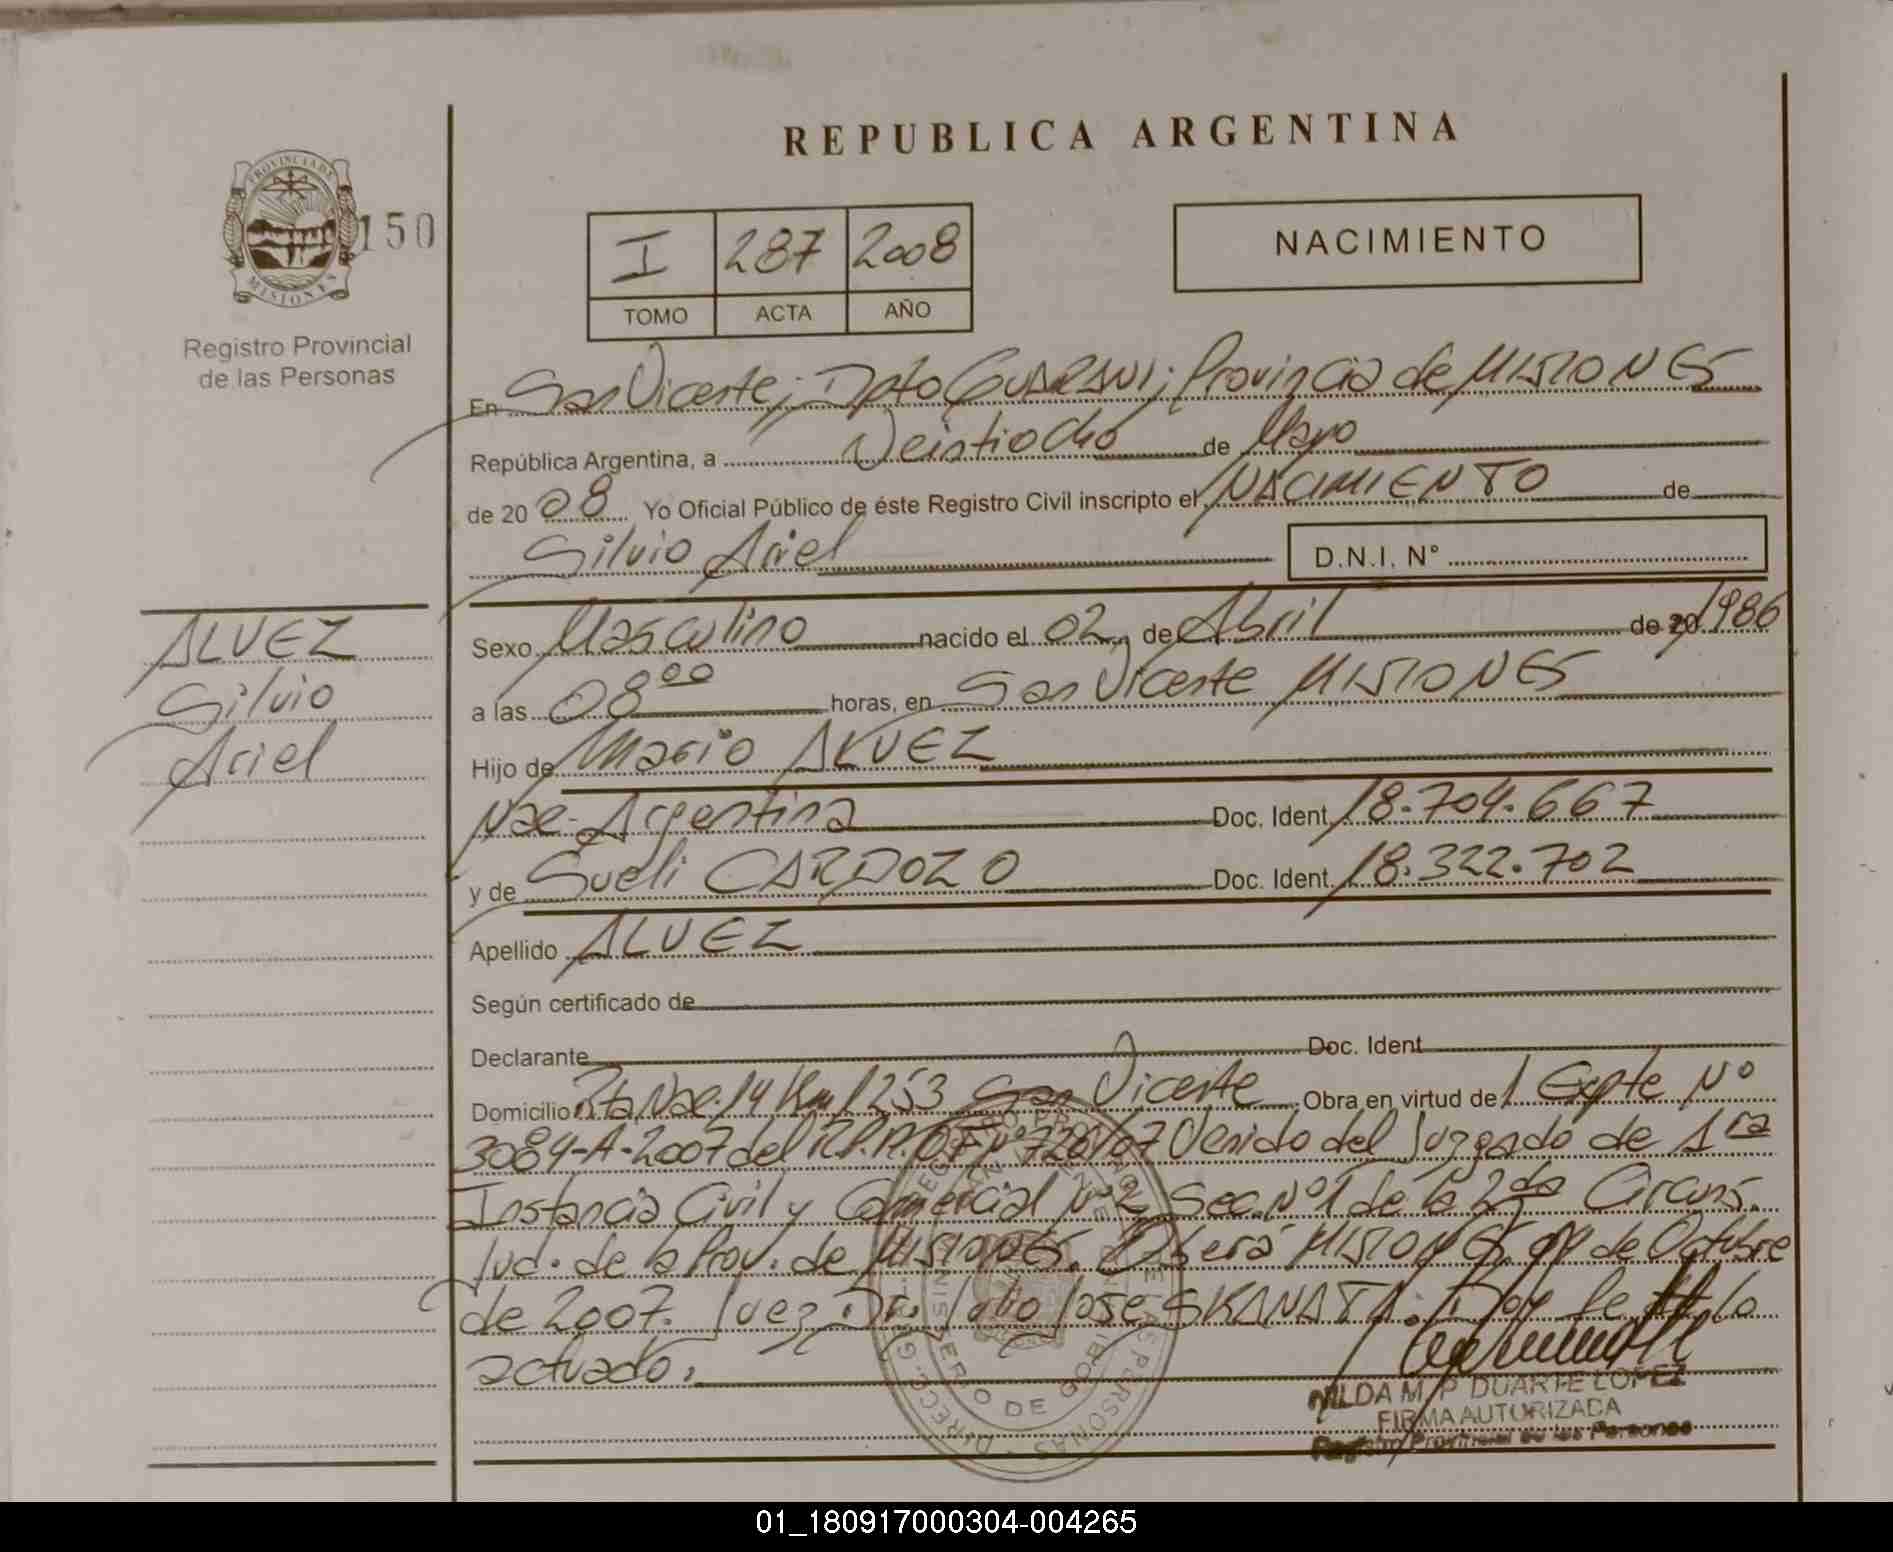 REPUBLICA ARGENTINA
PROVINCIA DE
MISIONES
150
Registro Provincial
de las Personas
I 287 2008
TOMO ACTA AÑO
NACIMIENTO
En San Vicente; Dpto GUARANI; Provincia de MISIONES
República Argentina, a Veintiocho de Mayo
de 2008 Yo Oficial Público de éste Registro Civil inscripto el NACIMIENTO de
Silvio Ariel D.N.I. N°
ALVEZ
Silvio
Ariel
Sexo Masculino nacido el 02 de Abril de 20 1986
a las 08 00 horas, en San Vicente MISIONES
Hijo de Mario ALVEZ
Nac. Argentina Doc. Ident. 18.704.667
y de Sueli CARDOZO Doc. Ident. 18.322.702
Apellido ALVEZ
Según certificado de
Declarante Doc. Ident
Domicilio Rta Nac. 14 Km 1253 San Vicente Obra en virtud de Expte Nº
3084-A-2007 del R.P.P. OF Nº 726/07 Venido del Juzgado de 1ra
Instancia Civil y Comercial Nº 2 Sec. Nº 1 de la 2da Circuns.
Jud. de la Prov. de MISIONES. Oberá MISIONES, de Octubre
de 2007. Juez Dr. Julio José SKANATA. Doy fe
actuado.
MINISTERIO DE GOBIERNO
HILDA M. P. DUARTE LOPEZ
FIRMA AUTORIZADA
Registro Provincial de las Personas
01_180917000304-004265